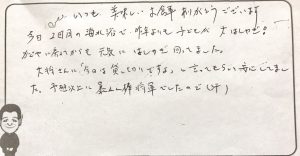 いつも美味しいお食事ありがとうございます
今日2回目の海水浴で昨年よりも子どもが大はしゃぎ!
かなり余ってからも元気にはしゃぎ回ってました。
大将さんに「今日は貸し切りですよ」と言ってもらい安心してました
た。予想以上に暴れん坊将軍でしたので(汗)